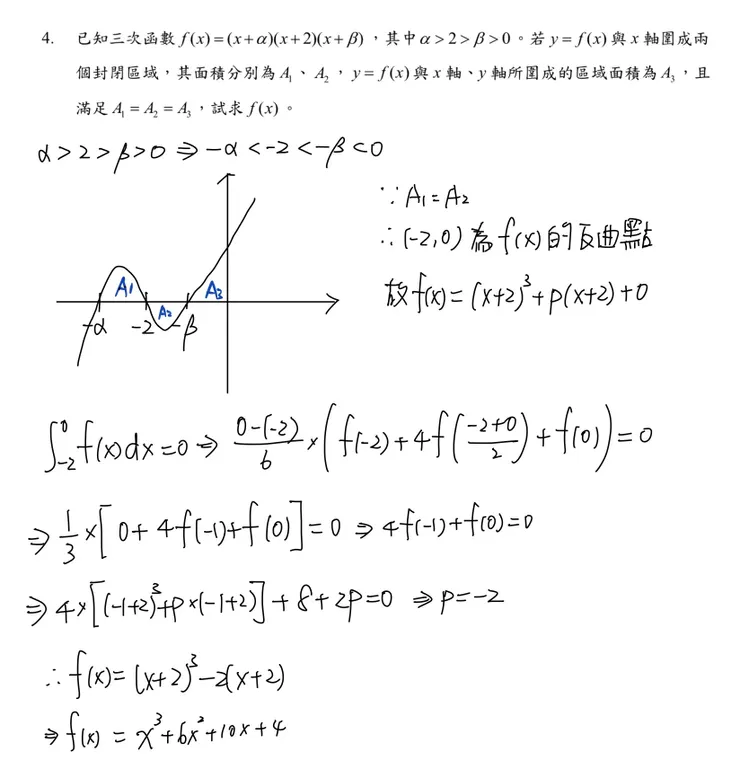 4. 已知三次函數 f(x)=(x+α)(x+2)(x+β),其中 α>2>β>0。若 y=f(x) 與 x 軸圍成兩
個封閉區域,其面積分別為 A₁、A₂,y=f(x) 與 x 軸、y 軸所圍成的區域面積為 A₃,且
滿足 A₁=A₂=A₃,試求 f(x)。
α>2>β>0 ⇒ -α<-2<-β<0
∵ A₁=A₂
∴ (-2,0) 為 f(x) 的反曲點
故 f(x) = (x+2)³+p(x+2)+0
A₁ A₂ A₃
-α -2 -β
∫₋₂⁰ f(x)dx=0 ⇒ (0-(-2))/6 × (f(-2)+4f((-2+0)/2)+f(0))=0
⇒ 1/3 × [0+4f(-1)+f(0)]=0 ⇒ 4f(-1)+f(0)=0
⇒ 4×[(-1+2)³+p×(-1+2)]+8+2p=0 ⇒ p=-2
∴ f(x)=(x+2)³-2(x+2)
⇒ f(x) = x³+6x²+10x+4